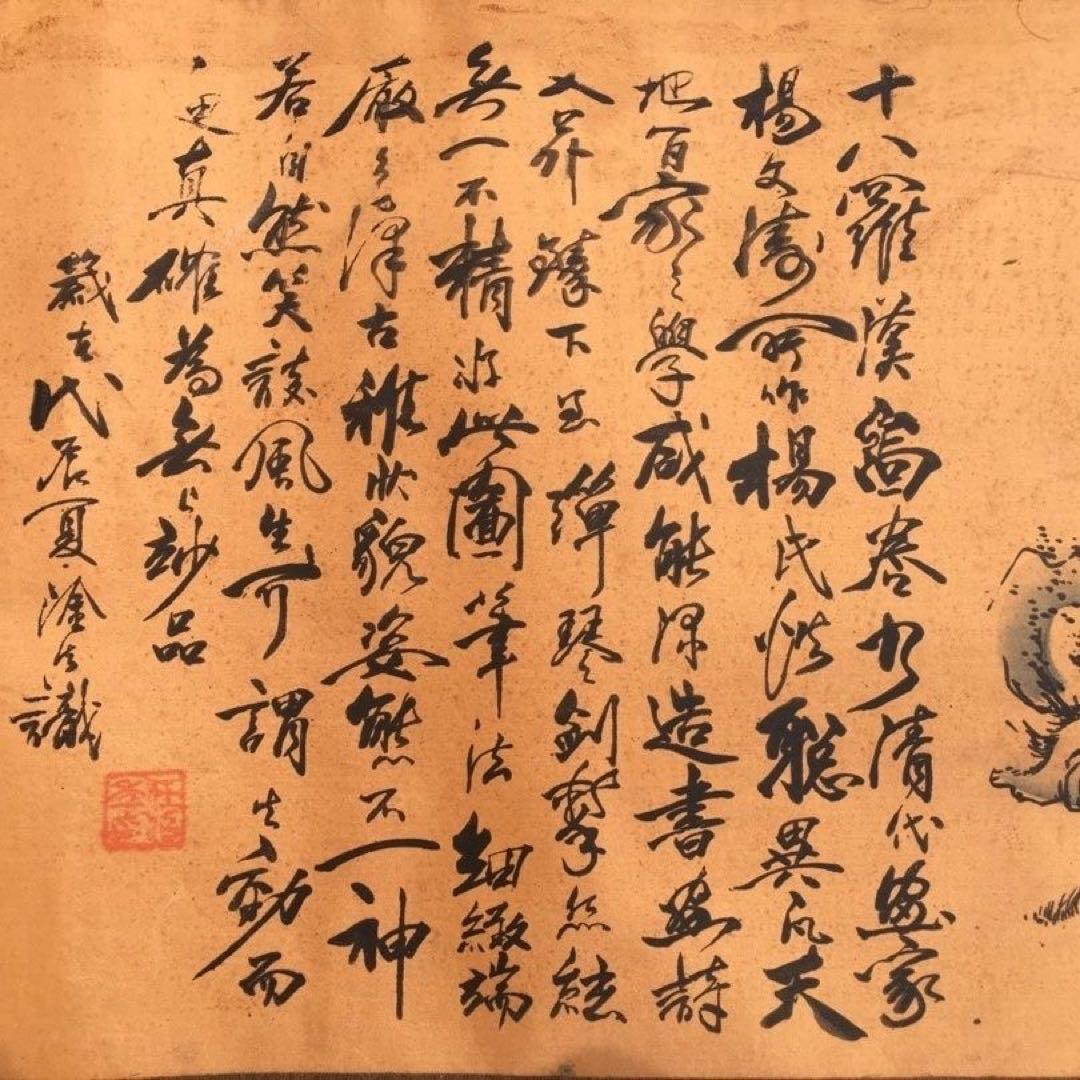 十八羅漢畫卷乃清代畫家
楊文濤所作楊氏聰異凡天
地百家之學咸能深造書畫詩
入昇臻下至彈琴劍擊然能
無一不精此圖筆法細緻端
嚴渾古雅狀貌姿態不一神
若自然笑談風生可謂生動而
更真確為無上妙品
代君夏識